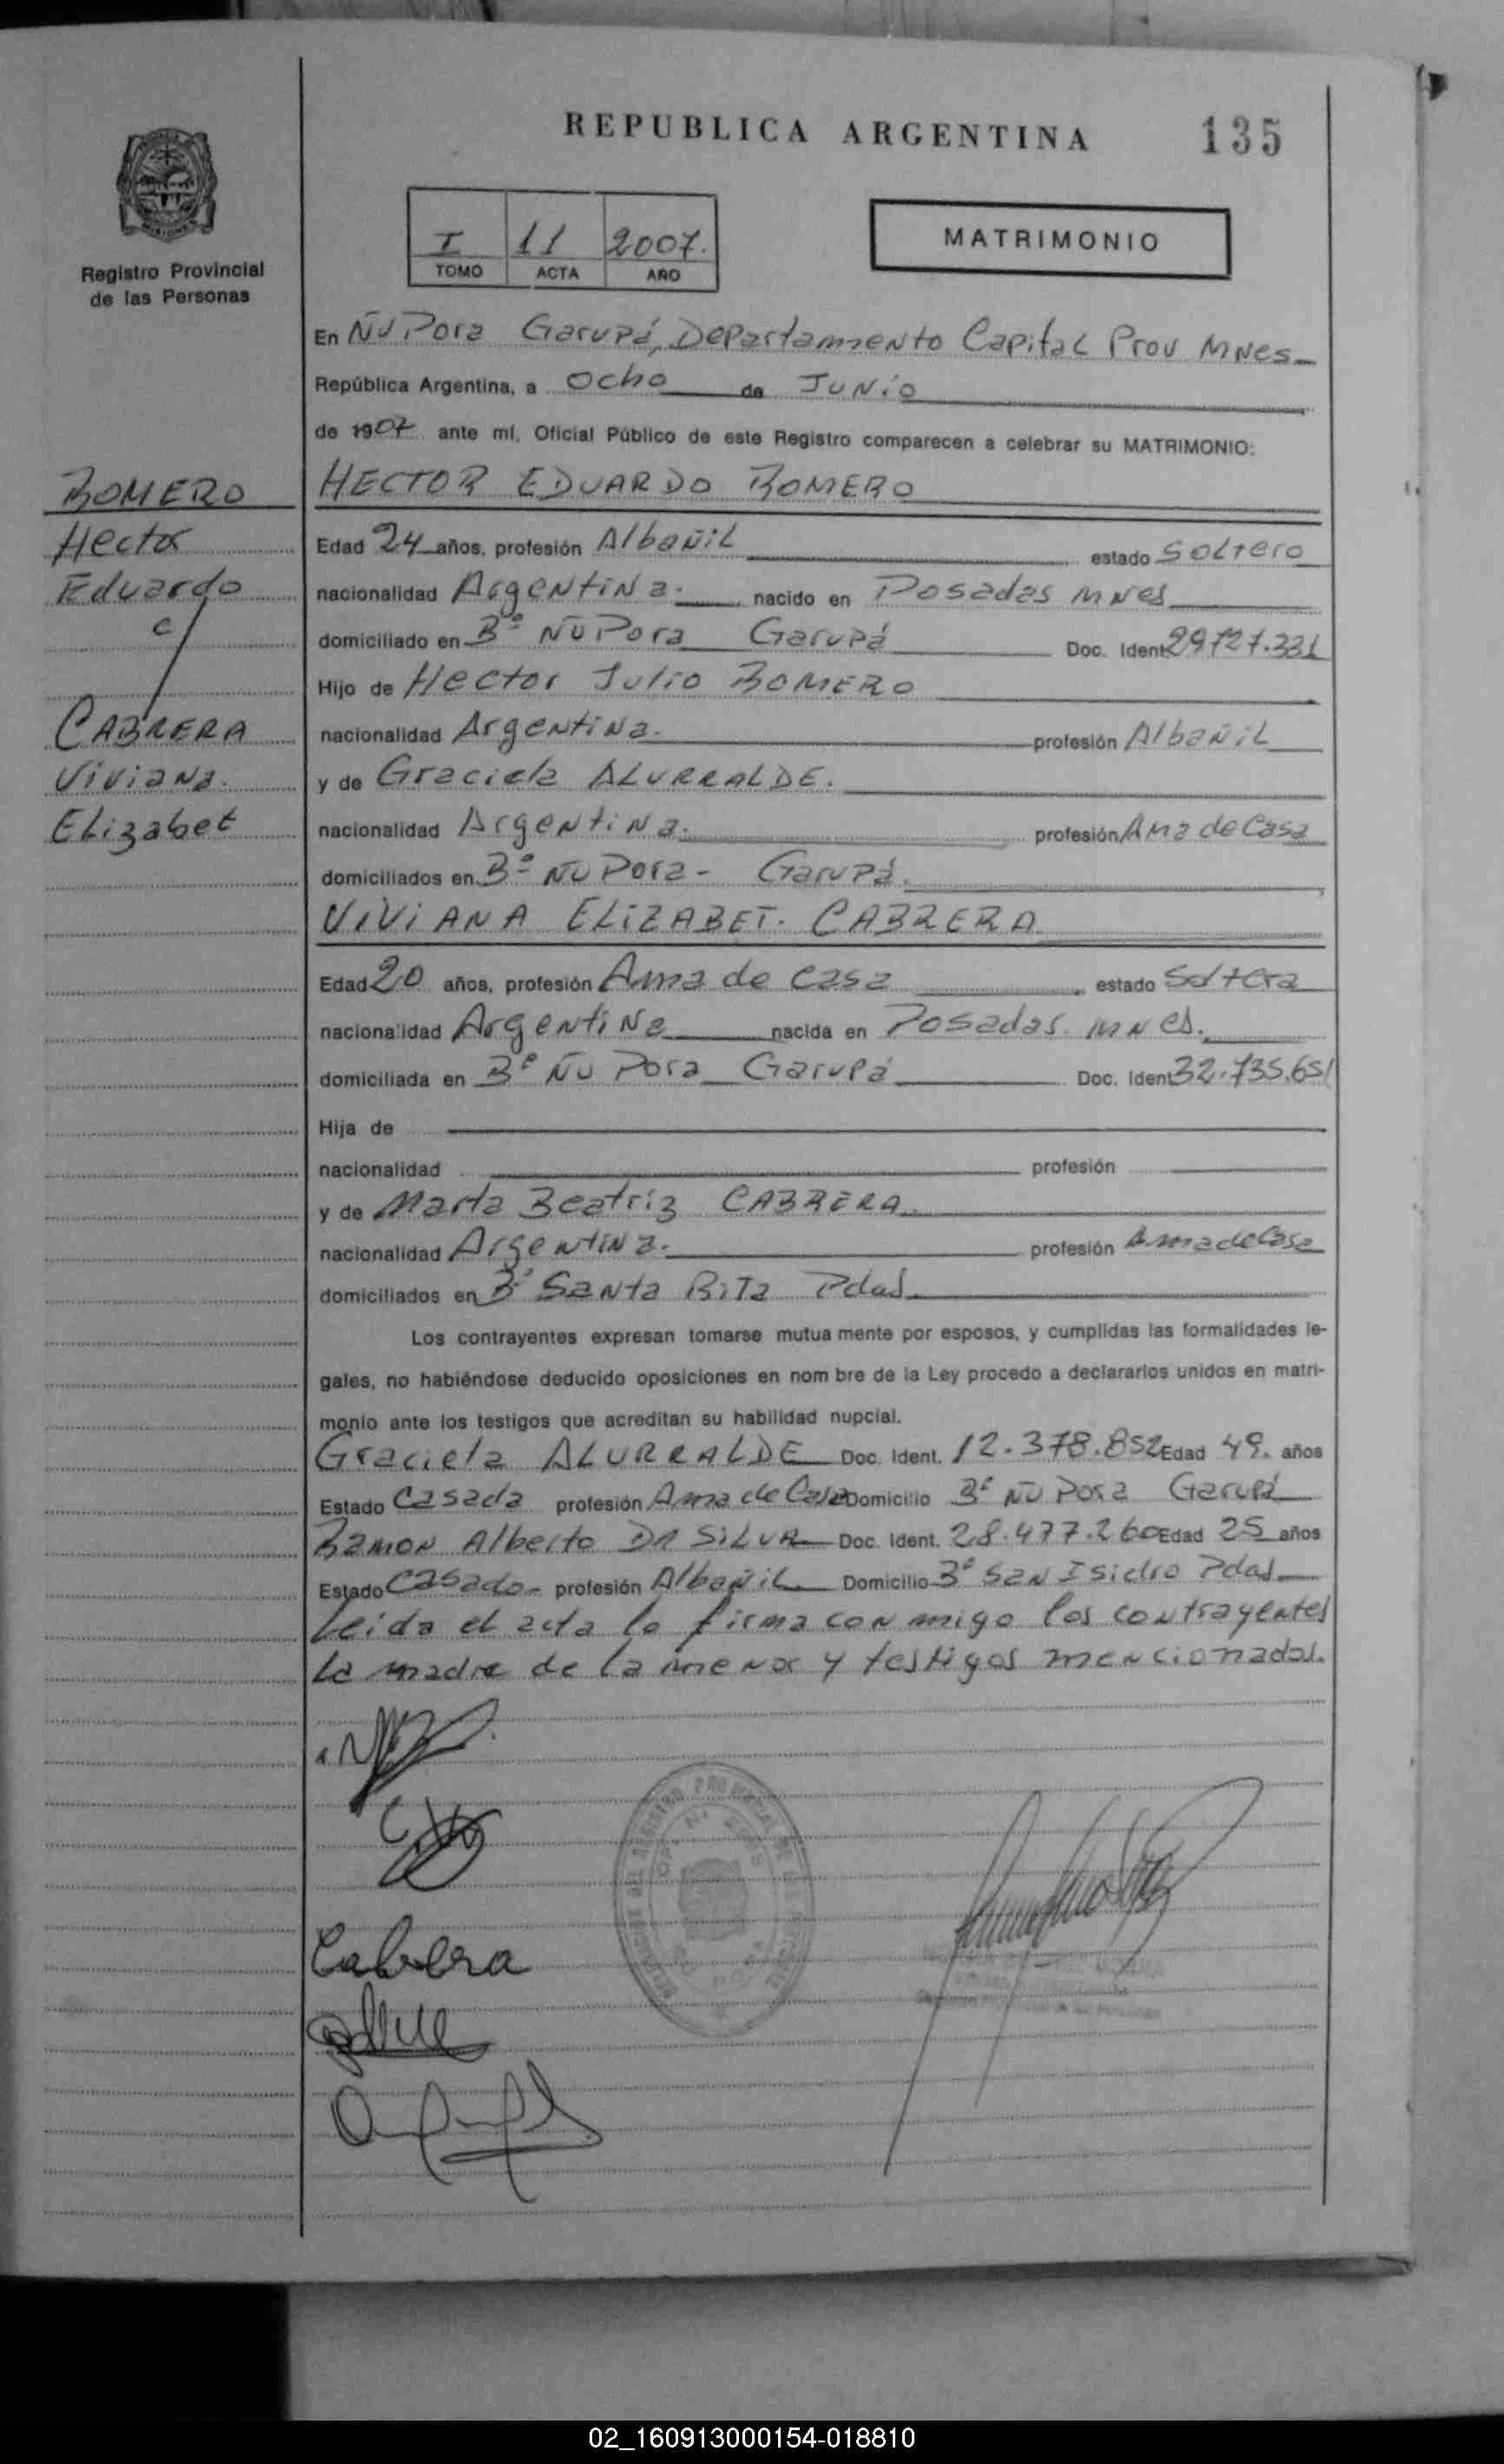 REPUBLICA ARGENTINA
135
Registro Provincial
de las Personas
I 11 2007.
TOMO ACTA AÑO
MATRIMONIO
En Ñu Pora Garupá, Departamento Capital Prov Mnes
República Argentina, a Ocho de Junio
de 1907 ante mí, Oficial Público de este Registro comparecen a celebrar su MATRIMONIO:
ROMERO
Hector
Eduardo
c/
CABRERA
Viviana.
Elizabet
HECTOR EDUARDO ROMERO
Edad 24 años, profesión Albañil estado Soltero
nacionalidad Argentina. nacido en Posadas Mnes
domiciliado en Bº Ñu Pora Garupá Doc. Ident 29.727.331
Hijo de Hector Julio ROMERO
nacionalidad Argentina. profesión Albañil
y de Graciela ALURRALDE.
nacionalidad Argentina. profesión Ama de Casa
domiciliados en Bº Ñu Pora - Garupá.
VIVIANA ELIZABET. CABRERA
Edad 20 años, profesión Ama de casa estado Soltera
nacionalidad Argentina nacida en Posadas Mnes.
domiciliada en Bº Ñu Pora Garupá Doc. Ident 32.735.651
Hija de
nacionalidad profesión
y de Marta Beatriz CABRERA
nacionalidad Argentina. profesión Ama de Casa
domiciliados en Bº Santa Rita Pdas
Los contrayentes expresan tomarse mutua mente por esposos, y cumplidas las formalidades le-
gales, no habiéndose deducido oposiciones en nom bre de la Ley procedo a declararlos unidos en matri-
monio ante los testigos que acreditan su habilidad nupcial.
Graciela ALURRALDE Doc. Ident. 12.378.852 Edad 49. años
Estado Casada profesión Ama de Casa Domicilio Bº Ñu Pora Garupá
Ramon Alberto DA SILVA Doc. Ident. 28.477.260 Edad 25 años
Estado Casado profesión Albañil Domicilio Bº San Isidro Pdas
Leida el acta la firma con migo los contrayentes
la madre de la menor y testigos mencionados.
Cabrera
02_160913000154-018810